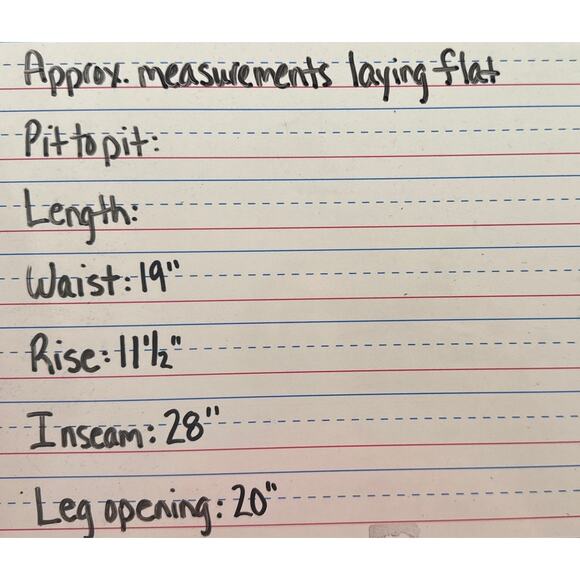 Approx. measurements laying flat
Pit to pit:
Length:
Waist: 19"
Rise: 11½"
Inseam: 28"
Leg opening: 20"